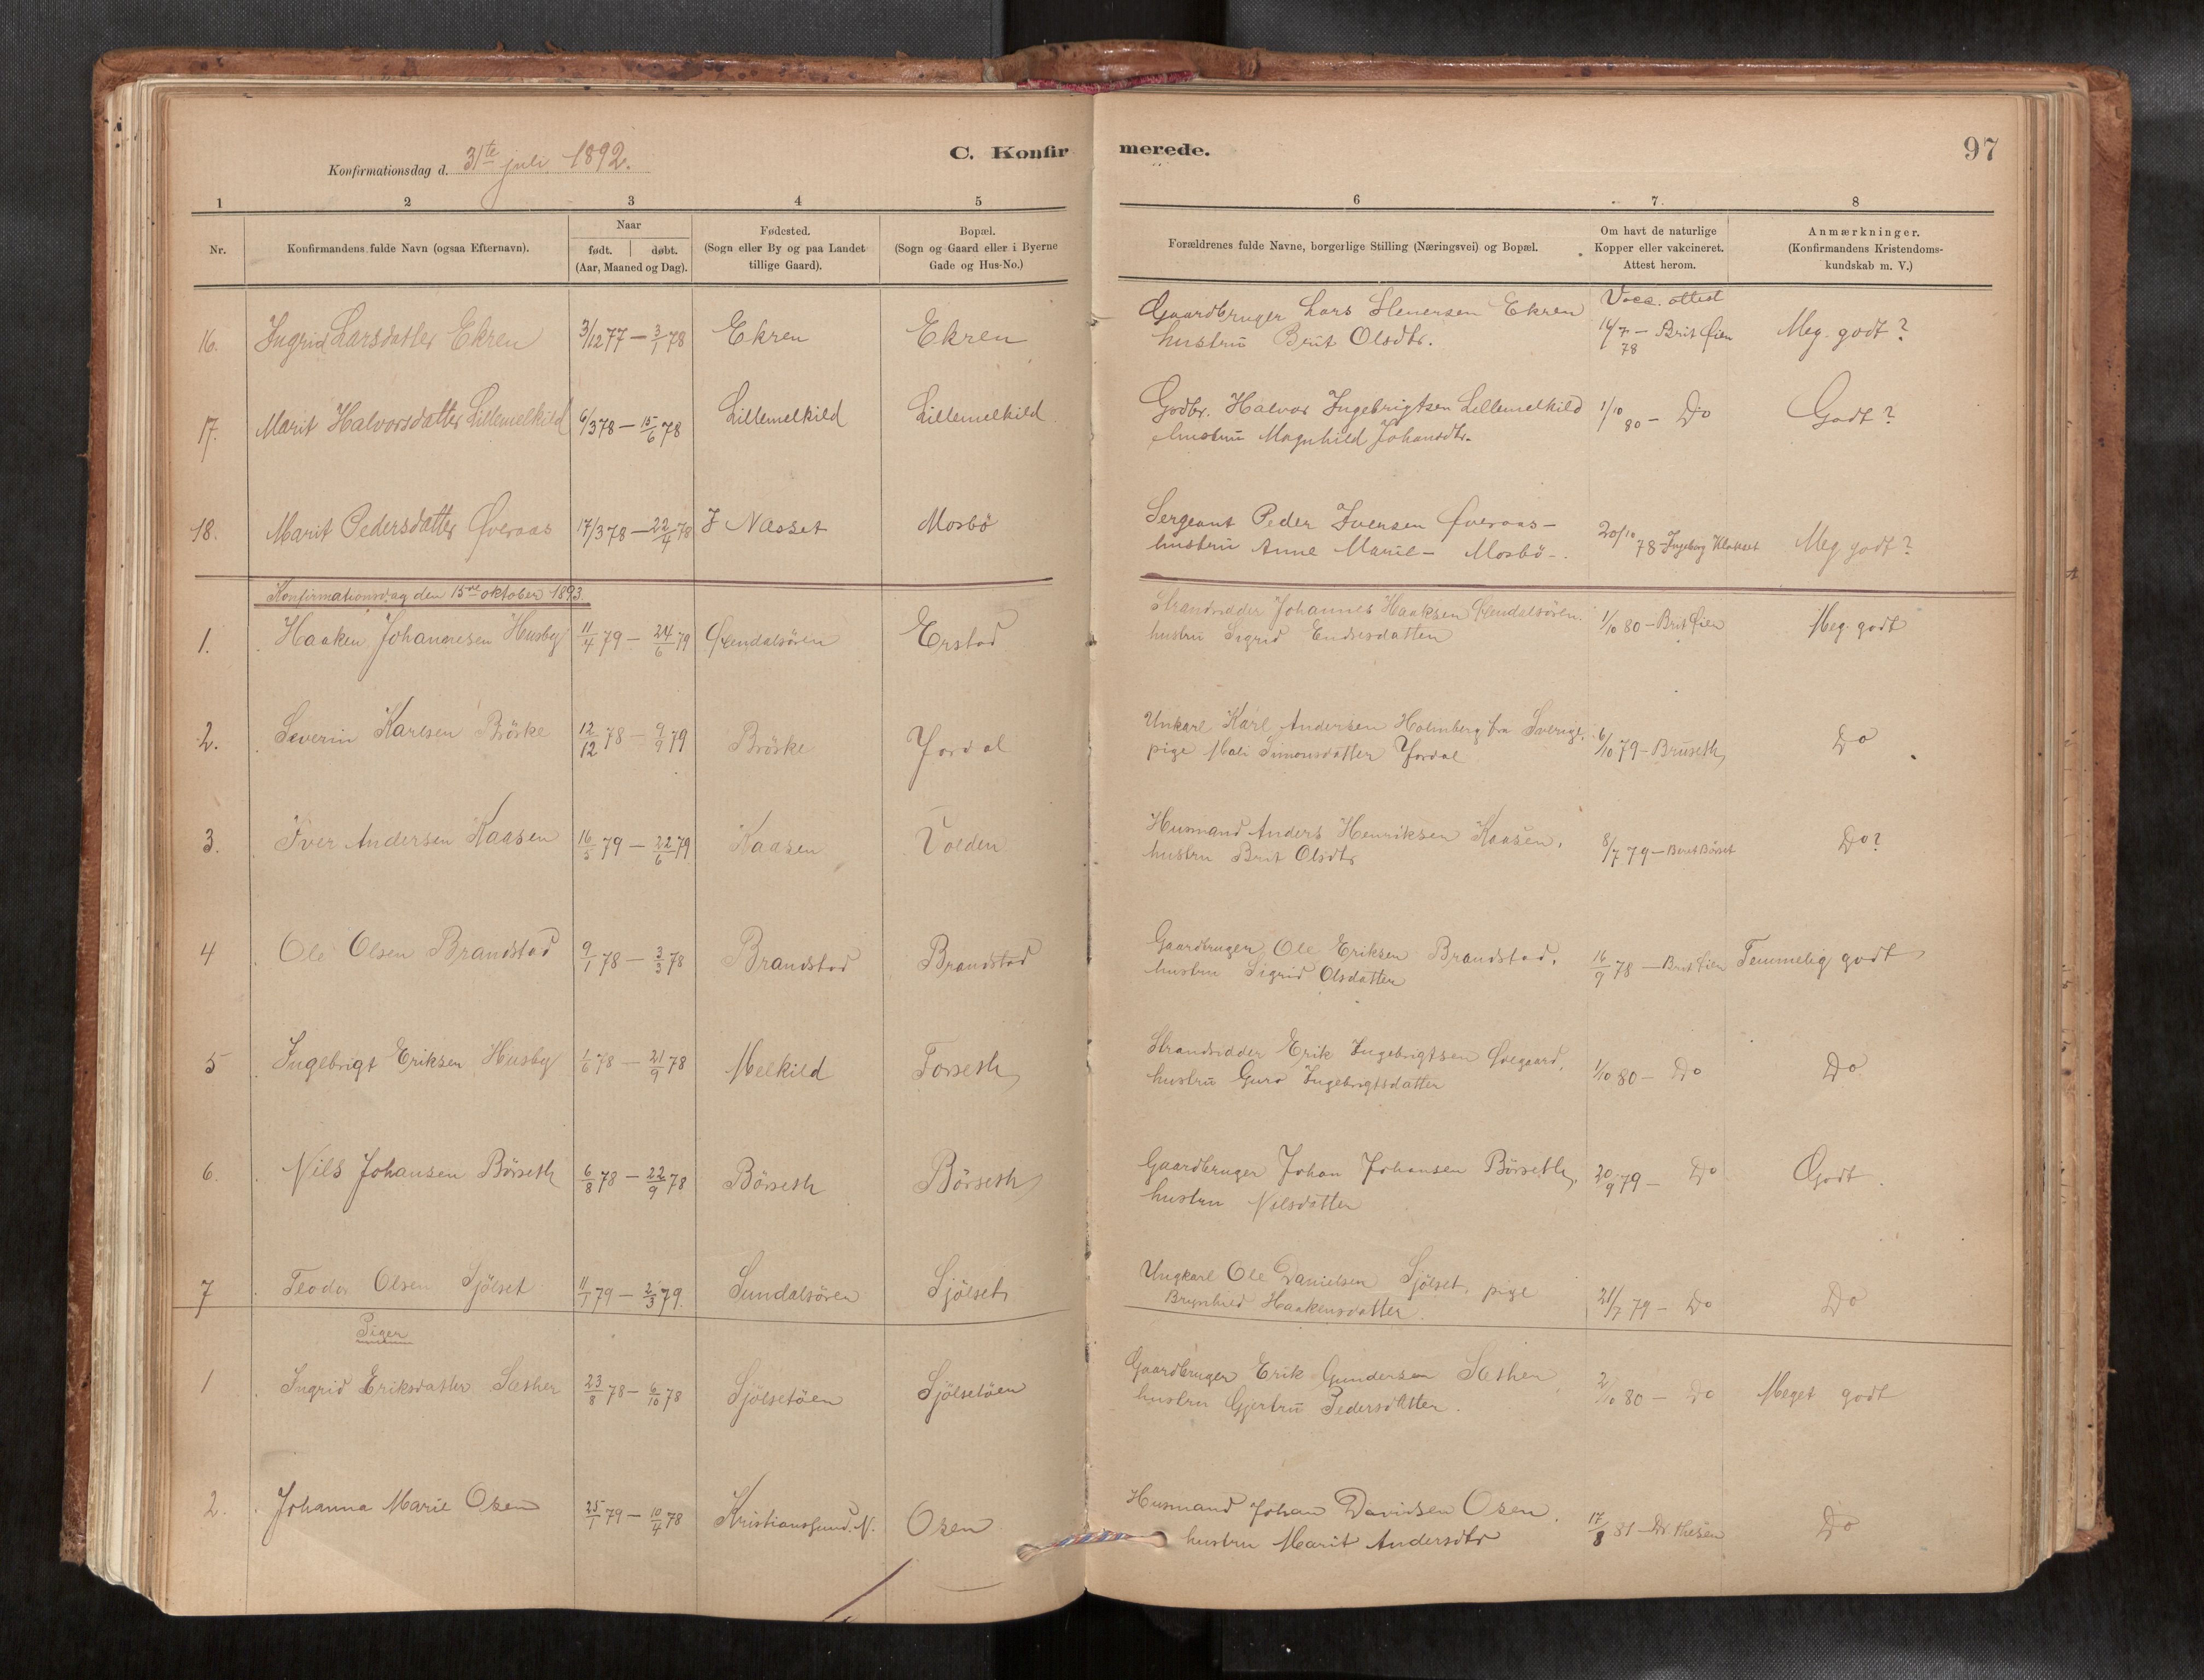 Konfirmationsdag d. 31te juli 1892.
C. Konfirmerede.
97
1 2 3 4 5 6 7. 8
Nr.
Konfirmandens fulde Navn (ogsaa Efternavn).
Naar
født. døbt.
(Aar, Maaned og Dag).
Fødested.
(Sogn eller By og paa Landet
tillige Gaard).
Bopæl.
(Sogn og Gaard eller i Byerne
Gade og Hus-No.)
Forældrenes fulde Navne, borgerlige Stilling (Næringsvei) og Bopæl.
Om havt de naturlige
Kopper eller vakcineret.
Attest herom.
Anmærkninger.
(Konfirmandens Kristendoms-
kundskab m. V.)
16. Ingrid Larsdatter Ekren 3/12 77 — 3/1 78 Ekren Ekren Gaardbruger Lars Ekren Vacc. attest
hustru Brit Olsdtr. 78 — Brit Øien Meg. godt?
17. Marit Halvorsdatter Lillemelkild 6/3 78 — 15/6 78 Lillemelkild Lillemelkild Gdbr. Halvor Ingebrigtsen Lillemelkild 1/10 80 — Do Godt?
hustru Magnhild Johansdtr.
18. Marit Pedersdatter Øveraas 17/3 78 — 22/4 78 I Nesset Mosbö Sergeant Peder Iversen Øveraas — 20/10 78 — Ingeborg Klokset Meg godt?
hustru Anne Marie — Mosbö —.
Konfirmationsdag den 15de oktober 1893.
1. Haaken Johannesen Husby 11/4 79 — 24/6 79 Erstad Strandsidder Johannes Haaksen 1/10 80 — Brit Øien Meg. godt
hustru Sigrid Endresdatter
2. Severin Karlsen Bröske 12/12 78 — 9/9 79 Bröske Jordal Unkarl Karl Andersen Holmberg fra Sverige, 6/10 79 — Bruseth Do
pige Mali Simonsdatter Jordal
3. Iver Andersen Kaasen 16/5 79 — 22/6 79 Kaasen Volden Husmand Anders Henriksen Kaasen, 8/7 79 — Berit Börset Do?
hustru Brit Olsdtr
4 Ole Olsen Brandstad 9/1 78 — 3/3 78 Brandstad Brandstad Gaardbruger Ole Eriksen Brandstad, 16/9 78 — Brit Øien Temmelig godt
hustru Sigrid Olsdatter
5 Ingebrigt Eriksen Husby 1/6 78 — 21/9 78 Melkild Torseth Strandsidder Erik Ingebrigtsen 1/10 80 — Do Do
hustru Guro Ingebrigtsdatter
6. Nils Johansen Börseth 6/8 78 — 22/9 78 Börseth Börseth Gaardbruger Johan Johansen Börseth, 20/9 79 — Do Godt.
hustru Nilsdatter
7 Teodor Olsen Sjölset 11/1 79 — 2/3 79. Sundalsören Sjölset Ungkarl Ole Danielsen Sjölset, pige 21/7 79 — Do Do
Brynhild Haakensdatter.
Piger
1 Ingrid Eriksdatter Sæther 23/8 78 — 6/10 78 Sjölsetöen Sjölsetöen Gaardbruger Erik Gundersen Sæther, 2/10 80 — Do Meget godt
hustru Gjertru Pedersdatter.
2. Johanna Marie Oxen 25/1 79 — 10/4 78 Kristianssund. N. Oxen Husmand Johan Davidsen Oxen, 17/8 81 — Dr Thesen Do
hustru Marit Andersdtr